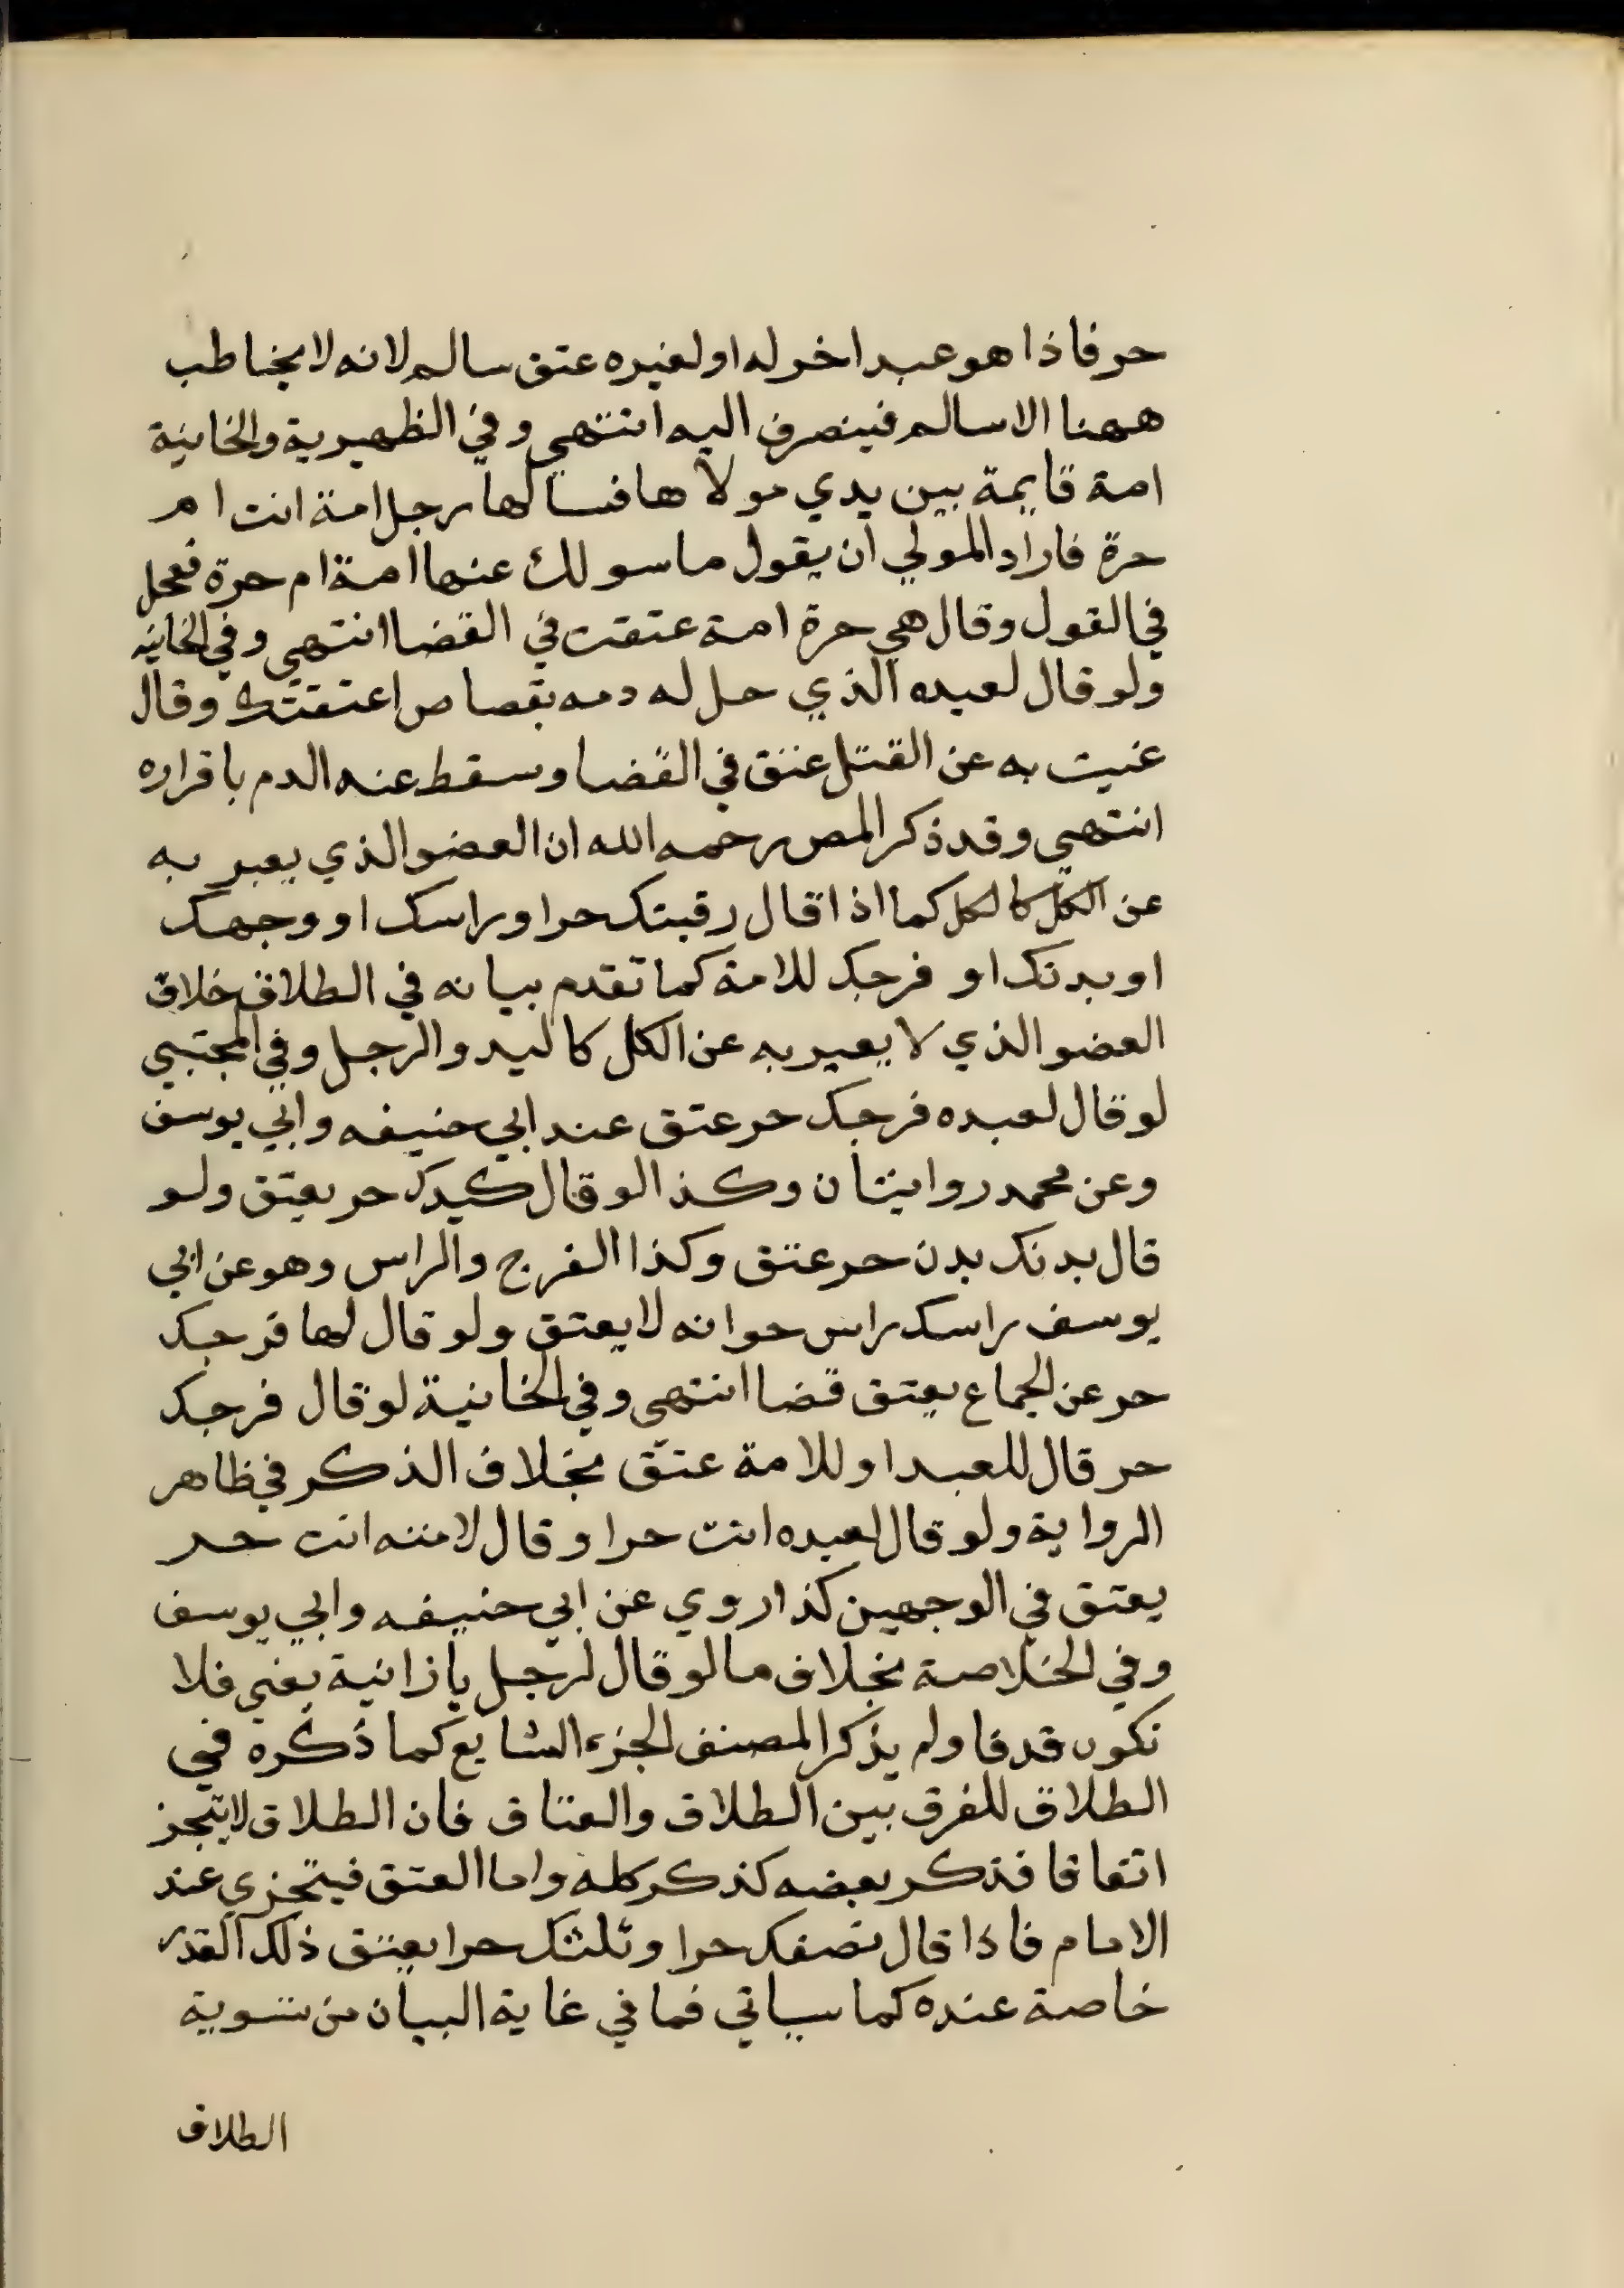 حر فاذا هو عبد اخر له او لغيره عتق سالم لانه لا يخاطب
ههنا الا سالم فينصرف اليه انتهي وفي الظهيرية والخانية
امة قايمة بين يدي مولاها فسالها رجل امة انت ام
حرة فاراد المولي ان يقول ما سولك عنها امة ام حرة فعجل
في القول وقال هي حرة امة عتقت في القضا انتهي وفي الخانيه
ولو قال لعبده الذي حل له دمه بقصاص اعتقتك وقال
عنيت به عن القتل عتق في القضا وسقط عنه الدم باقراره
انتهي وقد ذكر المص رحمه الله ان العضو الذي يعبر به
عن الكل كالكل كما اذا قال رقبتك حر او راسك او وجهك
او بدنك او فرجك للامة كما تقدم بيانه في الطلاق خلاف
العضو الذي لا يعبر به عن الكل كاليد والرجل وفي المجتبي
لو قال لعبده فرجك حر عتق عند ابي حنيفه وابي يوسف
وعن محمد روايتان وكذا لو قال كبدك حر يعتق ولو
قال بدنك بدن حر عتق وكذا الفرج والراس وهو عن ابي
يوسف راسك راس حر انه لا يعتق ولو قال لها فرجك
حر عن الجماع يعتق قضا انتهي وفي الخانية لو قال فرجك
حر قال للعبد او للامة عتق بخلاف الذكر في ظاهر
الرواية ولو قال لعبده انت حرا وقال لامته انت حر
يعتق في الوجهين كذا روي عن ابي حنيفه وابي يوسف
وفي الخلاصة بخلاف ما لو قال لرجل يا زانية يعني فلا
تكون قدفا ولم يذكر المصنف الجزء الشايع كما ذكره في
الطلاق للفرق بين الطلاق والعتاق فان الطلاق لا يتجز
اتفاقا فذكر بعضه كذكر كله واما العتق فيتجزي عند
الامام فاذا قال نصفك حرا وثلثك حرا يعتق ذلك القدر
خاصة عنده كما سياتي فما في غاية البيان من تسوية
الطلاق